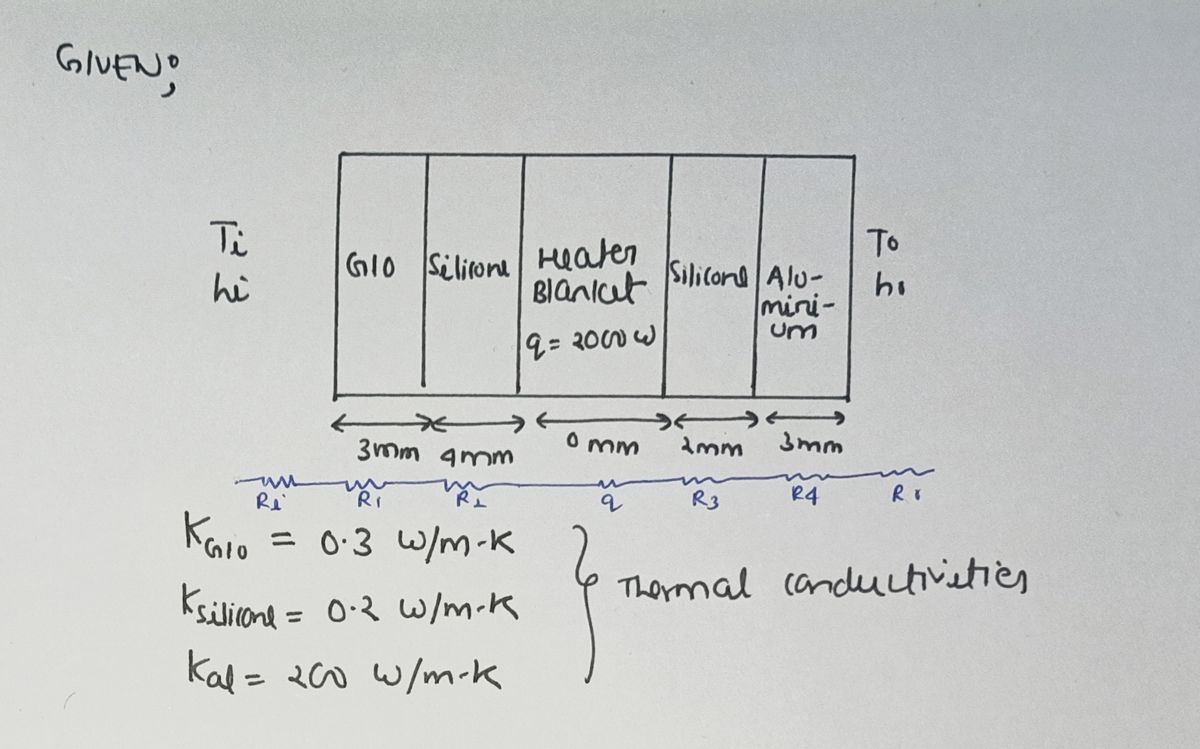 GIVEN;
Ti
hi
G10
Silicone
Heater
Blanket
q = 2000 W
Silicone
Alu-
mini-
um
To
ho
3mm 4mm 0 mm 2mm 3mm
Ri R1 R2 q R3 R4 Ro
KG10 = 0.3 W/m-K
Ksilicone = 0.2 W/m-K
Kal = 200 W/m-K
Thermal conductivities